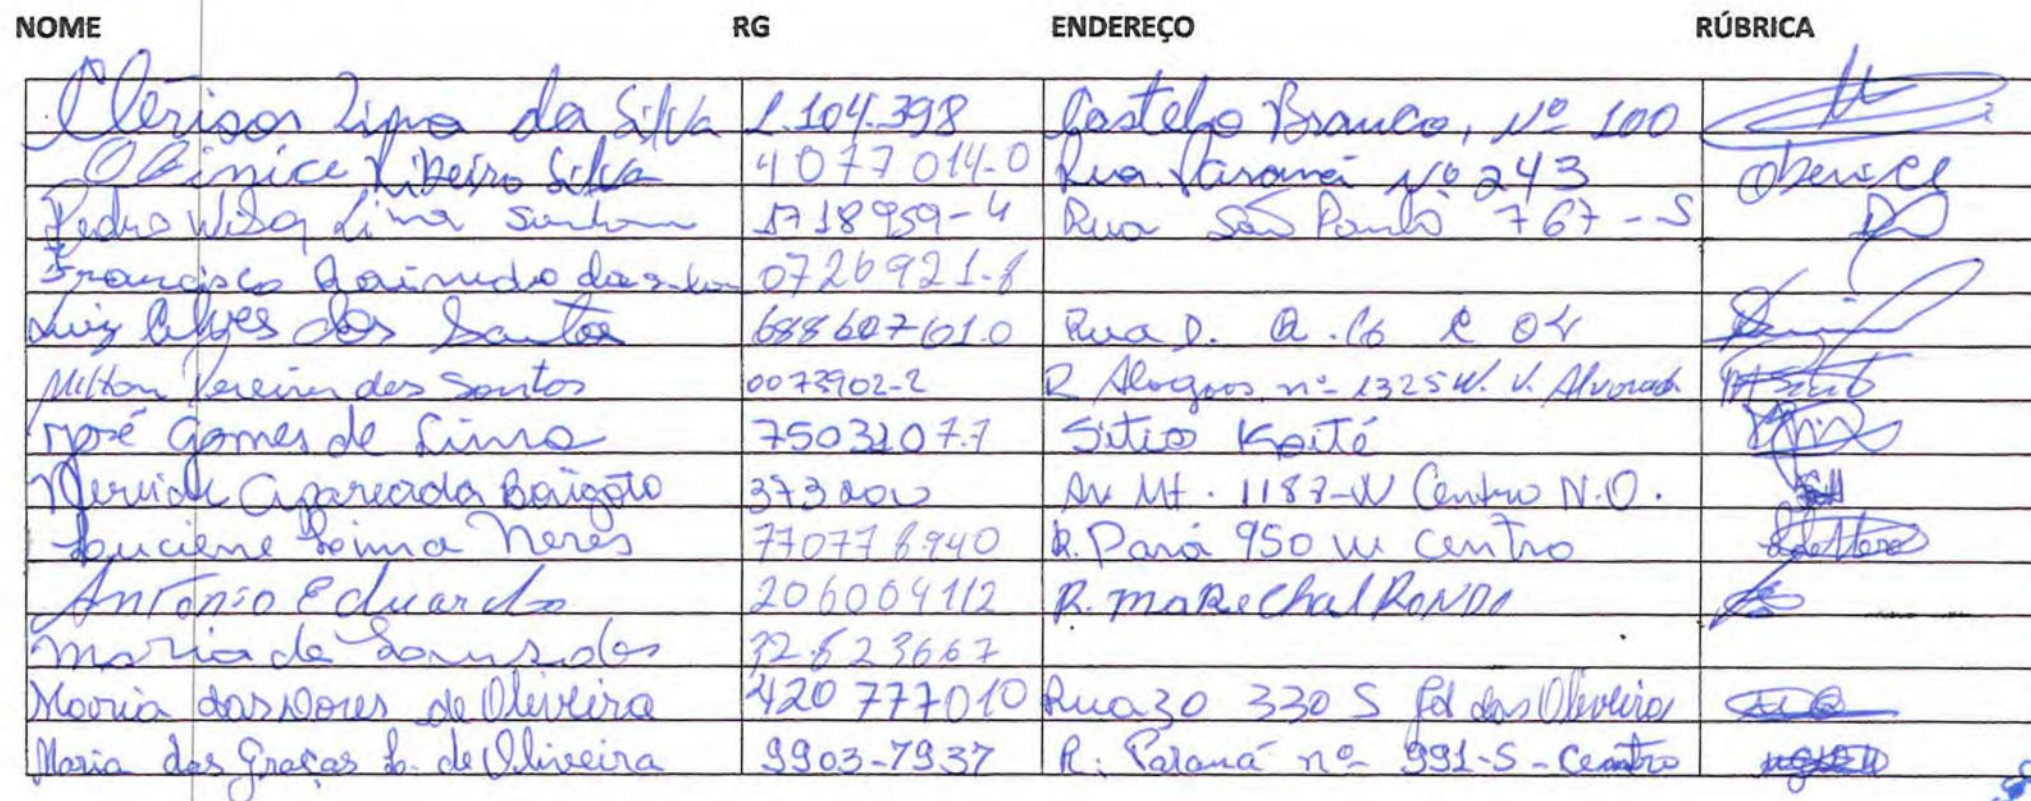 NOME RG ENDEREÇO RÚBRICA
Clerison Lino da Silva 1.104.398 Castelo Branco, Nº 100
Obinice Ribeiro Silva 4077014-0 Rua Paraná Nº 243 Obenice
Pedro Wilson Lima 1718959-4 Rua São Paulo 767-S
Francisco Raimundo 0726921-8
Luiz Alves dos Santos 688607601.0 Rua D. Q.
Milton Pereira dos Santos 0073902-2 R Alagoas nº 1325W. V. Alvorada
José Gomes de Lima 7503107.7 Sitio Kaité
Aparecida 373 Av Mt. 1187-W Centro N.O.
Luciene Leima Neres 770778.940 R. Pará 950 W Centro
Antonio Eduardo 206009112 R. MaReChal RoNDO
Maria de
Maria das Dores de Oliveira 420 777010 Rua 30 330 S Jd das Oliveira
Maria das Graças L. de Oliveira 9903-7937 R: Paraná nº 991-S-Centro